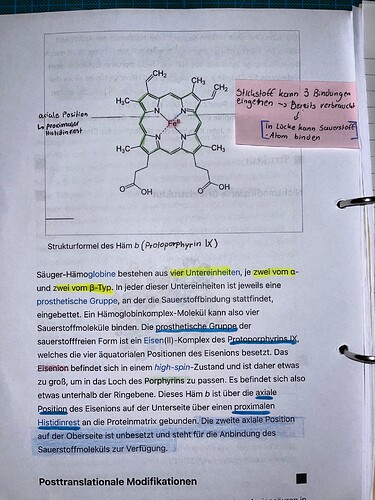 CH₂
CH₃
CH₂
H₃C
N
N
Feᴵᴵ
N
N
H₃C
CH₃
O
OH
O
OH
axiale Position
↳ proximaler
Histidinrest
Stickstoff kann 3 Bindungen
eingehen → Bereits verbraucht
↓
[in Lücke kann Sauerstoff
-Atom binden]
Strukturformel des Häm b (Protoporphyrin IX)
Säuger-Hämoglobine bestehen aus vier Untereinheiten, je zwei vom α-
und zwei vom β-Typ. In jeder dieser Untereinheiten ist jeweils eine
prosthetische Gruppe, an der die Sauerstoffbindung stattfindet,
eingebettet. Ein Hämoglobinkomplex-Molekül kann also vier
Sauerstoffmoleküle binden. Die prosthetische Gruppe der
sauerstofffreien Form ist ein Eisen(II)-Komplex des Protoporphyrins IX,
welches die vier äquatorialen Positionen des Eisenions besetzt. Das
Eisenion befindet sich in einem high-spin-Zustand und ist daher etwas
zu groß, um in das Loch des Porphyrins zu passen. Es befindet sich also
etwas unterhalb der Ringebene. Dieses Häm b ist über die axiale
Position des Eisenions auf der Unterseite über einen proximalen
Histidinrest an die Proteinmatrix gebunden. Die zweite axiale Position
auf der Oberseite ist unbesetzt und steht für die Anbindung des
Sauerstoffmoleküls zur Verfügung.
Posttranslationale Modifikationen